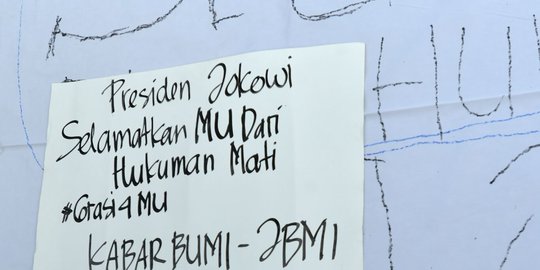 Presiden Jokowi
Selamatkan MU Dari
Hukuman Mati
#Grasi4MU
KABAR BUMI - JBMI
HU